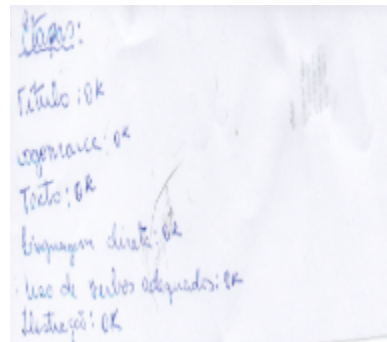 Etapas:
Título: OK
Logomarca: OK
Texto: OK
Linguagem direta: OK
· Uso de verbos adequados: OK
Ilustração: OK